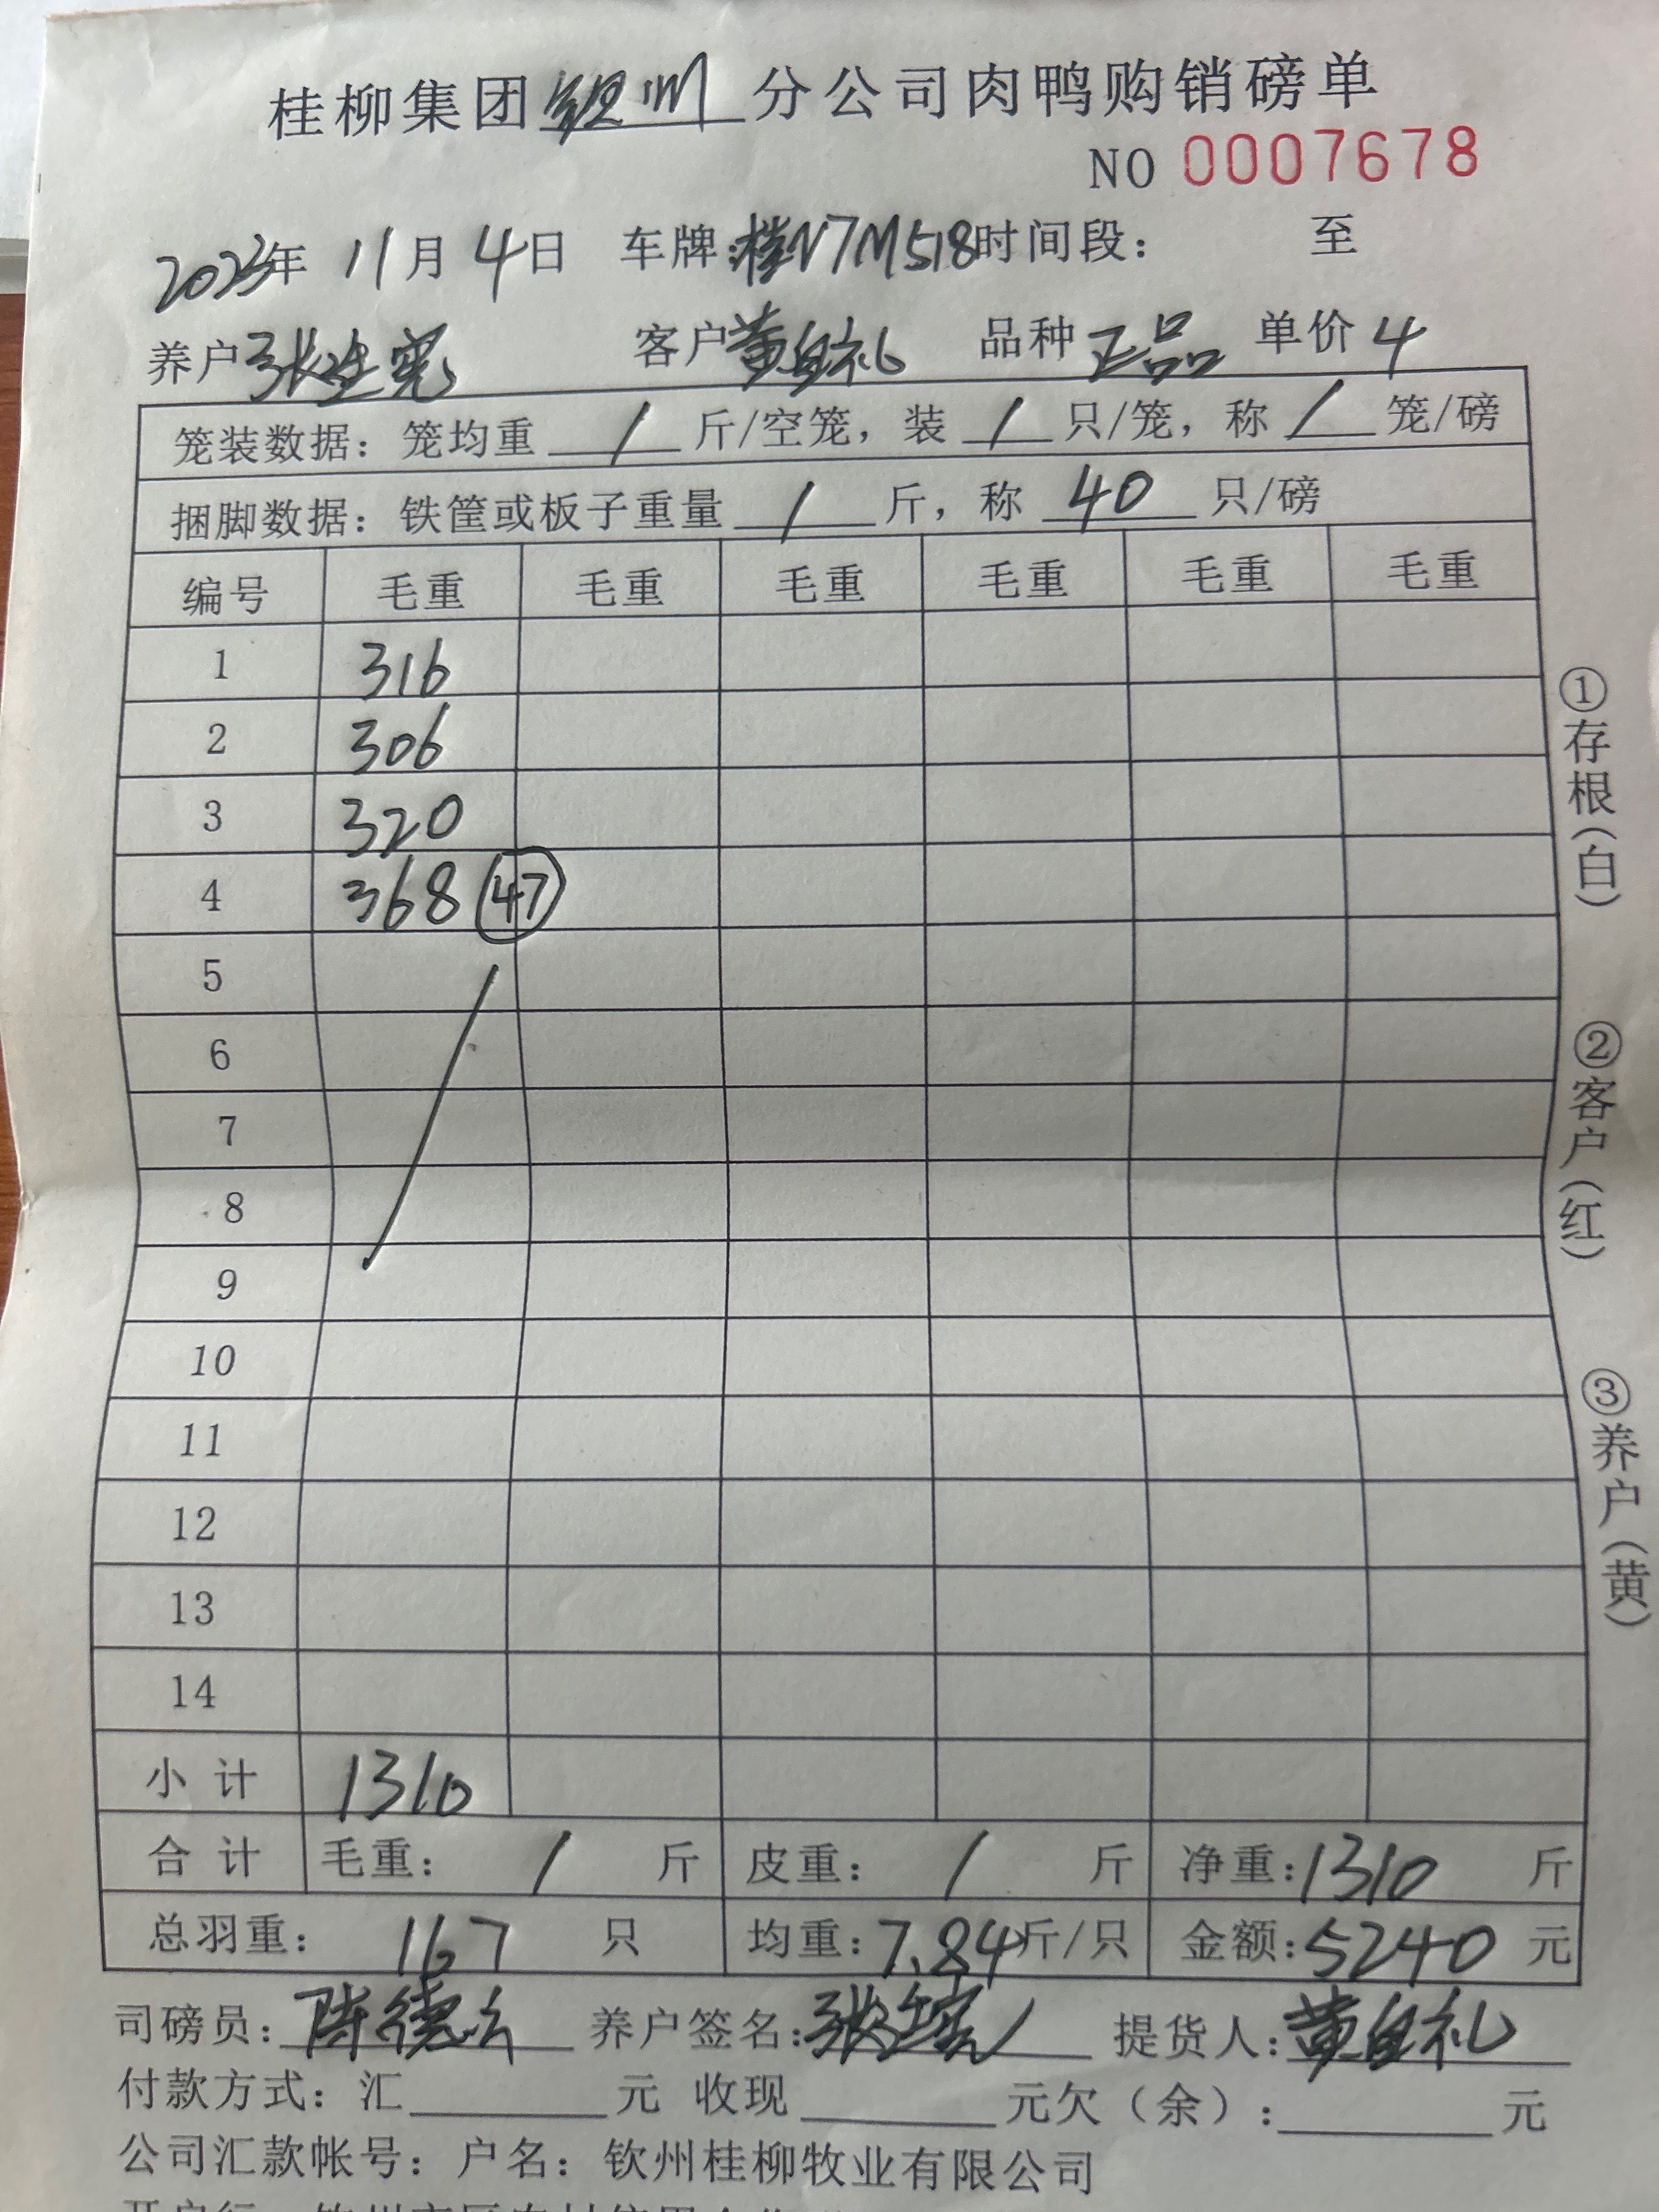 桂柳集团钦州分公司肉鸭购销磅单
NO 0007678
2023年 11月 4日 车牌:桂N7M518时间段: 至
养户 张生宪 客户 黄自礼 品种 正品 单价 4
笼装数据: 笼均重 / 斤/空笼, 装 / 只/笼, 称 / 笼/磅
捆脚数据: 铁筐或板子重量 / 斤, 称 40 只/磅
编号 毛重 毛重 毛重 毛重 毛重 毛重
1 316
2 306
3 320
4 368 47
5
6
7
8
9
10
11
12
13
14
小计 1310
合计 毛重: / 斤 皮重: / 斤 净重:1310 斤
总羽重: 167 只 均重:7.84斤/只 金额:5240 元
司磅员: 陈德 养户签名: 张生宪 提货人: 黄自礼
付款方式: 汇 元 收现 元欠(余): 元
公司汇款帐号: 户名: 钦州桂柳牧业有限公司
①存根(白)
②客户(红)
③养户(黄)